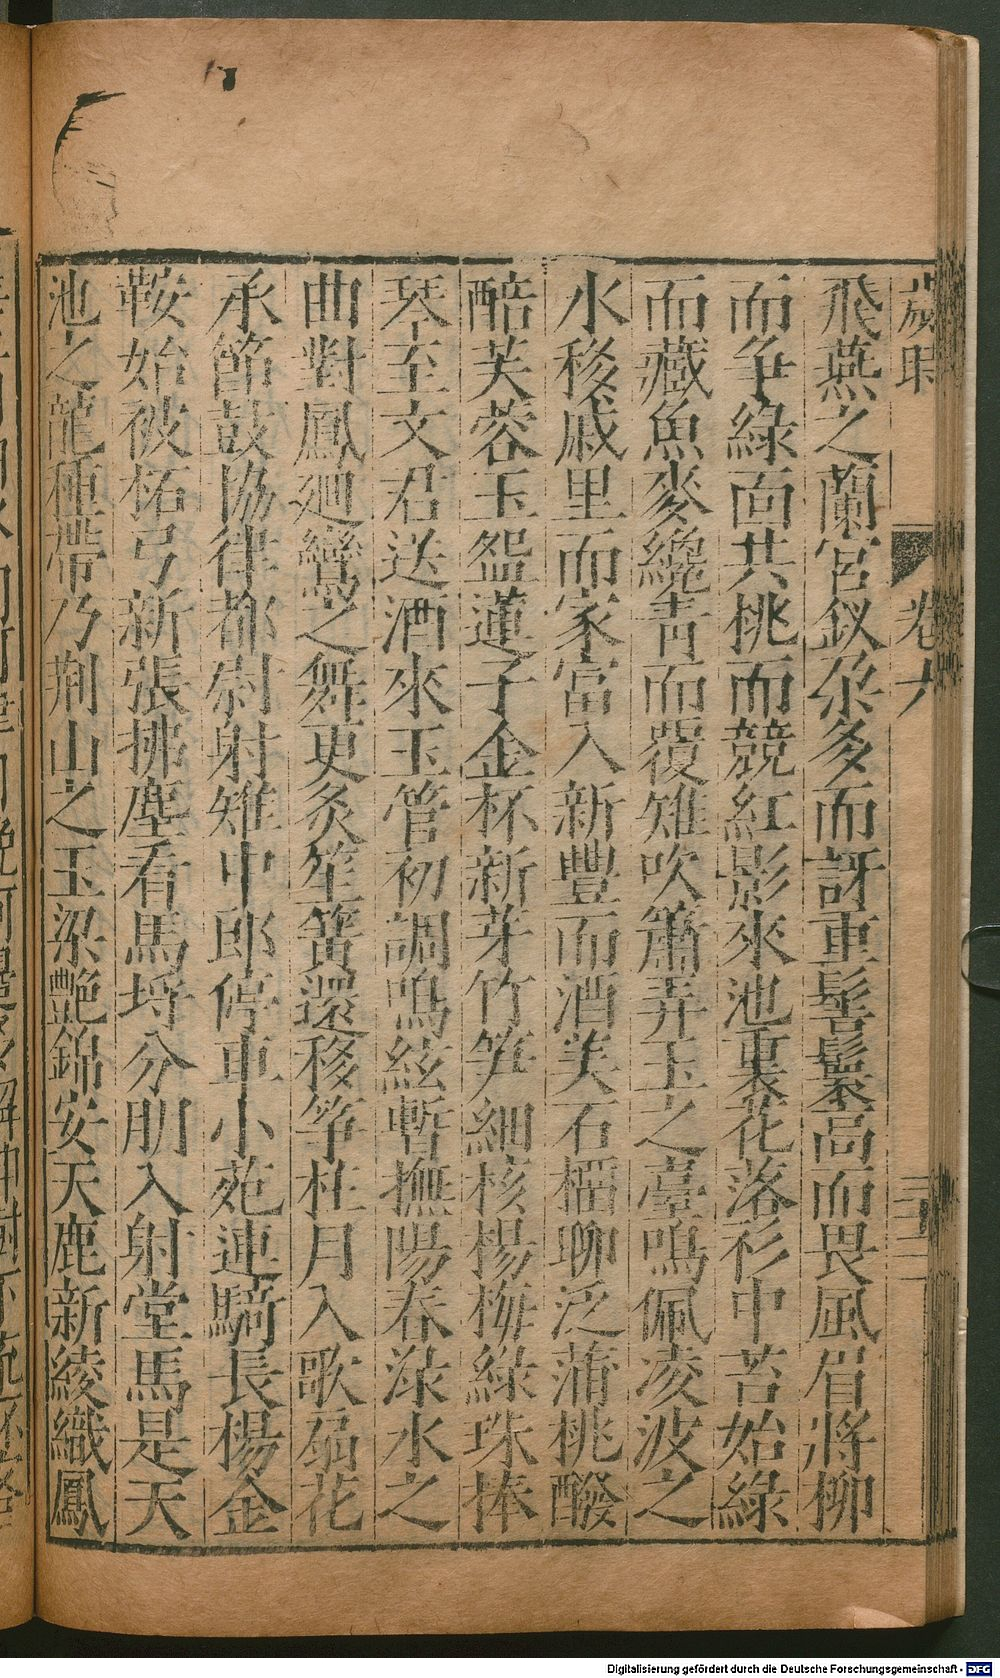 歲時 卷六
飛燕之蘭宮釵朶多而訝重髻鬟高而畏風眉將柳
而争綠面共桃而競紅影來池裏花落衫中苔始綠
而藏魚麥纔青而覆雉吹簫弄玉之臺鳴佩凌波之
水移戚里而家富入新豐而酒美石榴聊泛蒲桃醱
醅芙蓉玉盌蓮子金杯新芽竹笋細核楊梅綠珠捧
琴至文君送酒來玉管初調鳴絃暫撫陽春淥水之
曲對鳳廻鸞之舞更炙笙簧還移筝柱月入歌扇花
承節鼓協律都尉射雉中郎停車小苑連騎長楊金
鞍始被柘弓新張拂塵看馬埒分朋入射堂馬是天
池之龍種帶乃荆山之玉梁艷錦安天鹿新綾織鳳
Digitalisierung gefördert durch die Deutsche Forschungsgemeinschaft - DFG